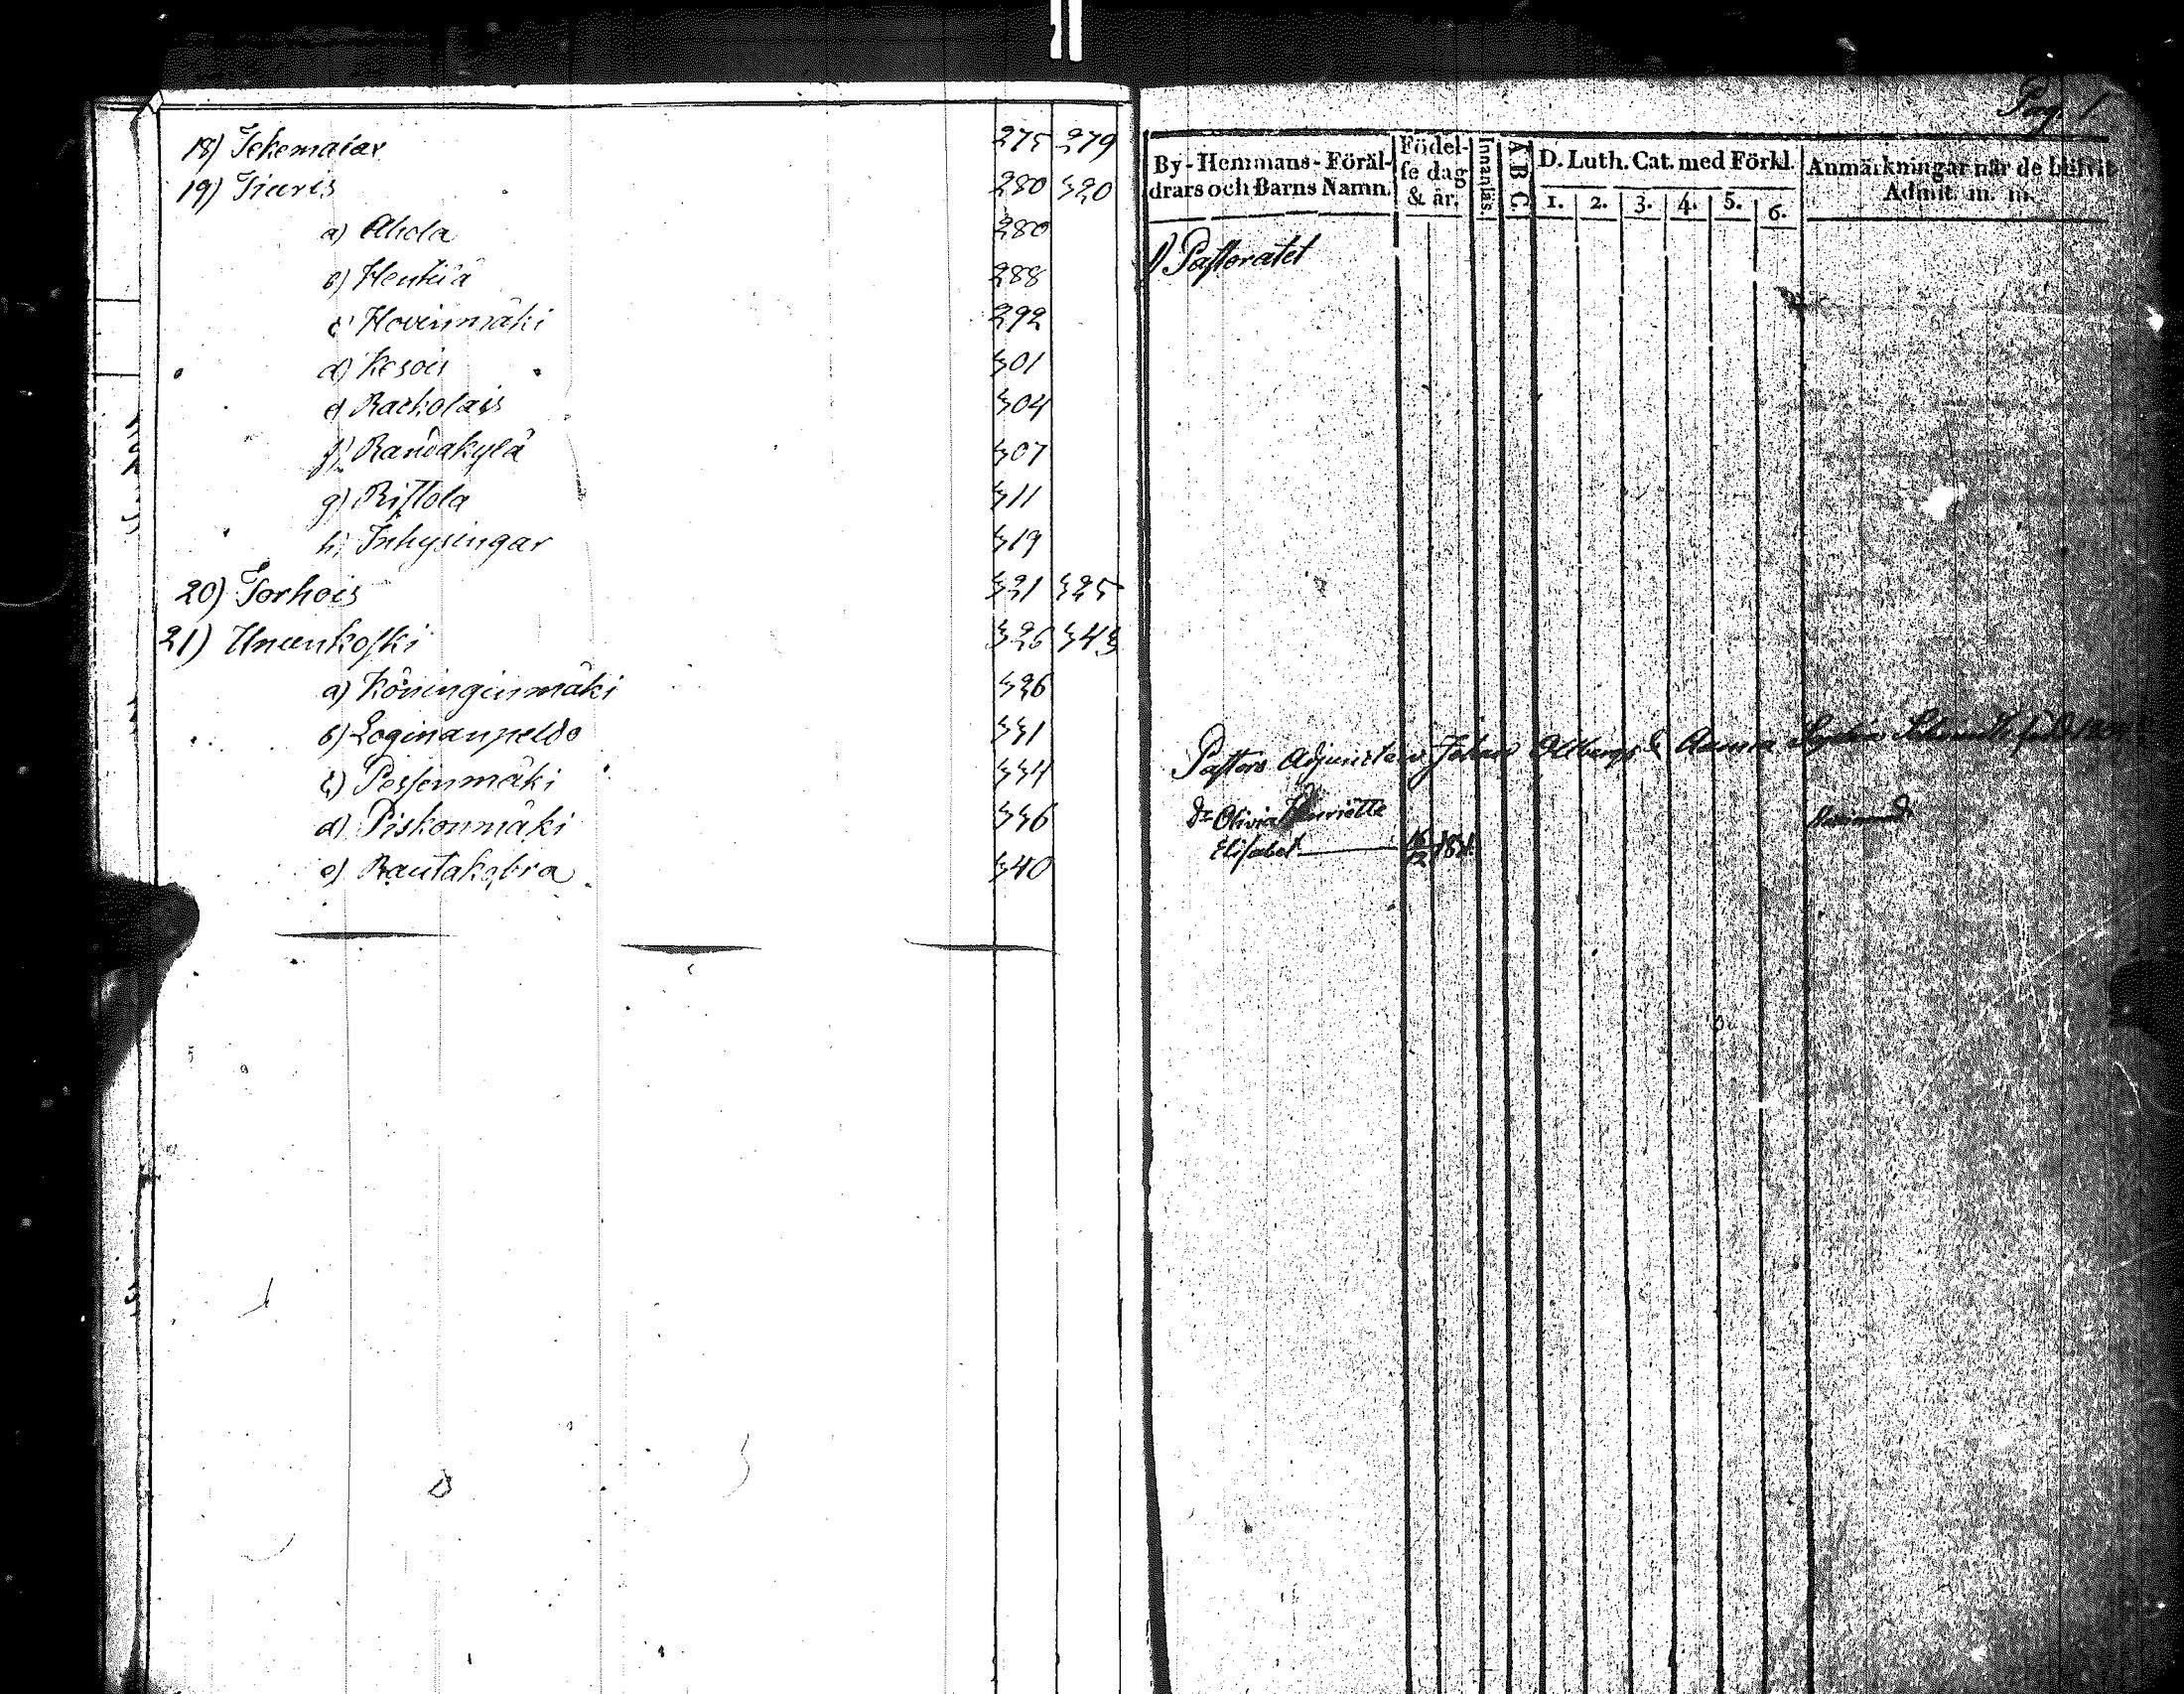 18) Tekemaiar 275 279
19) Tiaris 280 320
a) Ahola 280
b) Hentúa 288
c) Hovinmäki 292
d) Kesois 301
e) Racholais 304
f) Randakylä 307
g) Ristola 311
h) Inhysingar 319
20) Torhois 321 325
21) Unonkoski 326 343
a) Köninginmäki 326
b) Loginanpeldo 331
c) Pessenmäki 334
d) Piskonmäki 336
e) Rautakobra 340
Pag. 1
By-Hemmans-Föräl-
drars och Barns Namn.
Födel-
se dag
& år.
Innanläs.
A B C.
D. Luth. Cat. med Förkl.
1. 2. 3. 4. 5. 6.
Anmärkningar när de blifvit
Admit. m. m.
1) Pastoratet
Pastors Adjuncten Johan Ollbergs & Anna
Dr Olivia Henriette
Elisabet 16/12